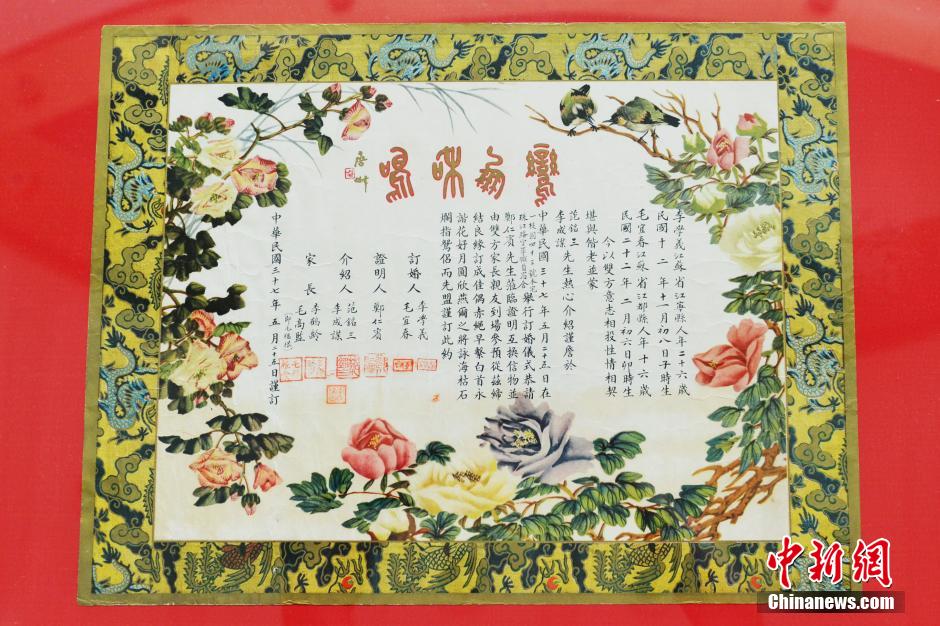 鸞翔和鳴
李學義江蘇省江寧縣人年二十六歲
民國十二年十一月初八日子時生
毛宜春江蘇省江都縣人年十六歲
民國二十二年二月初六日卯時生
今以雙方意志相投性情相契
堪與偕老並蒙
范銘三
李成謀先生熱心介紹謹詹於
中華民國三十七年五月二十五日在
舉行訂婚儀式恭請
鄭仁賓先生蒞臨證明互換信物並
由雙方家長親友到場參預從茲締
結良緣訂成佳偶赤繩早繫白首永
諧花好月圓欣燕爾之將詠海枯石
爛指鴛侶而先盟謹訂此約
訂婚人 李學義
毛宜春
證明人 鄭仁賓
介紹人 范銘三
李成謀
家長 李鶴齡
毛高鑑
中華民國三十七年五月二十五日謹訂
中新網
Chinanews.com